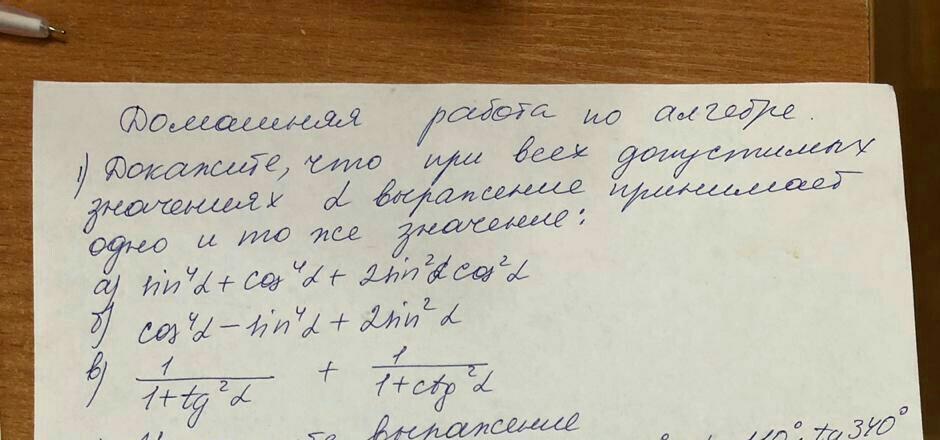 Домашняя работа по алгебре.
1) Докажите, что при всех допустимых
значениях α выражение принимает
одно и то же значение:
а) sin⁴α + cos⁴α + 2sin²α cos²α
б) cos⁴α - sin⁴α + 2sin²α
в) 1/(1+tg²α) + 1/(1+ctg²α)
выражение
tg 340°